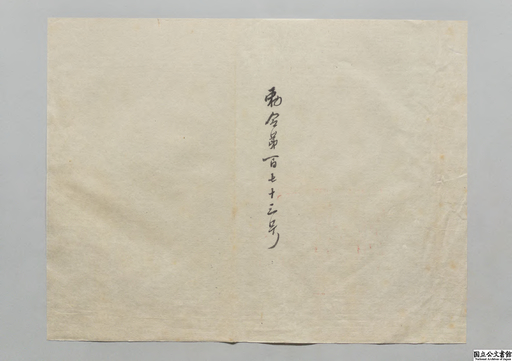 勅令第百七十三号
国立公文書館
National Archives of Japan